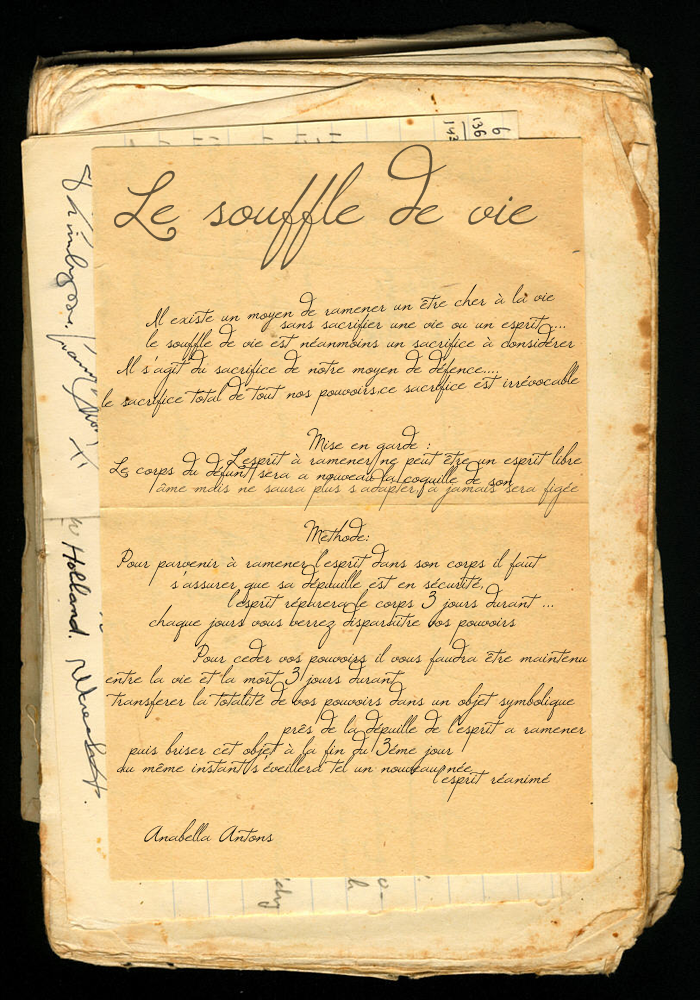 Le souffle de vie
Il existe un moyen de ramener un être cher à la vie
sans sacrifier une vie ou un esprit....
le souffle de vie est néanmoins un sacrifice à considérer
Il s'agit du sacrifice de notre moyen de défence....
le sacrifice total de tout nos pouvoirs.ce sacrifice est irrévocable
Mise en garde :
L'esprit à ramener ne peut être un esprit libre
Le corps du défunt sera a nouveau la coquille de son
âme mais ne saura plus s'adapter, a jamais sera figée
Méthode:
Pour parvenir à ramener l'esprit dans son corps il faut
s'assurer que sa dépuille est en sécurité,
l'esprit réparera le corps 3 jours durant ...
chaque jours vous verrez disparaître vos pouvoirs
Pour ceder vos pouvoirs il vous faudra être maintenu
entre la vie et la mort 3 jours durant
transferer la totalité de vos pouvoirs dans un objet symbolique
près de la dépuille de l'esprit a ramener
puis briser cet objet à la fin du 3éme jour
au même instant s'éveillera tel un nouveau née
l'esprit réanimé
Anabella Antons
6
136
143
Holland.